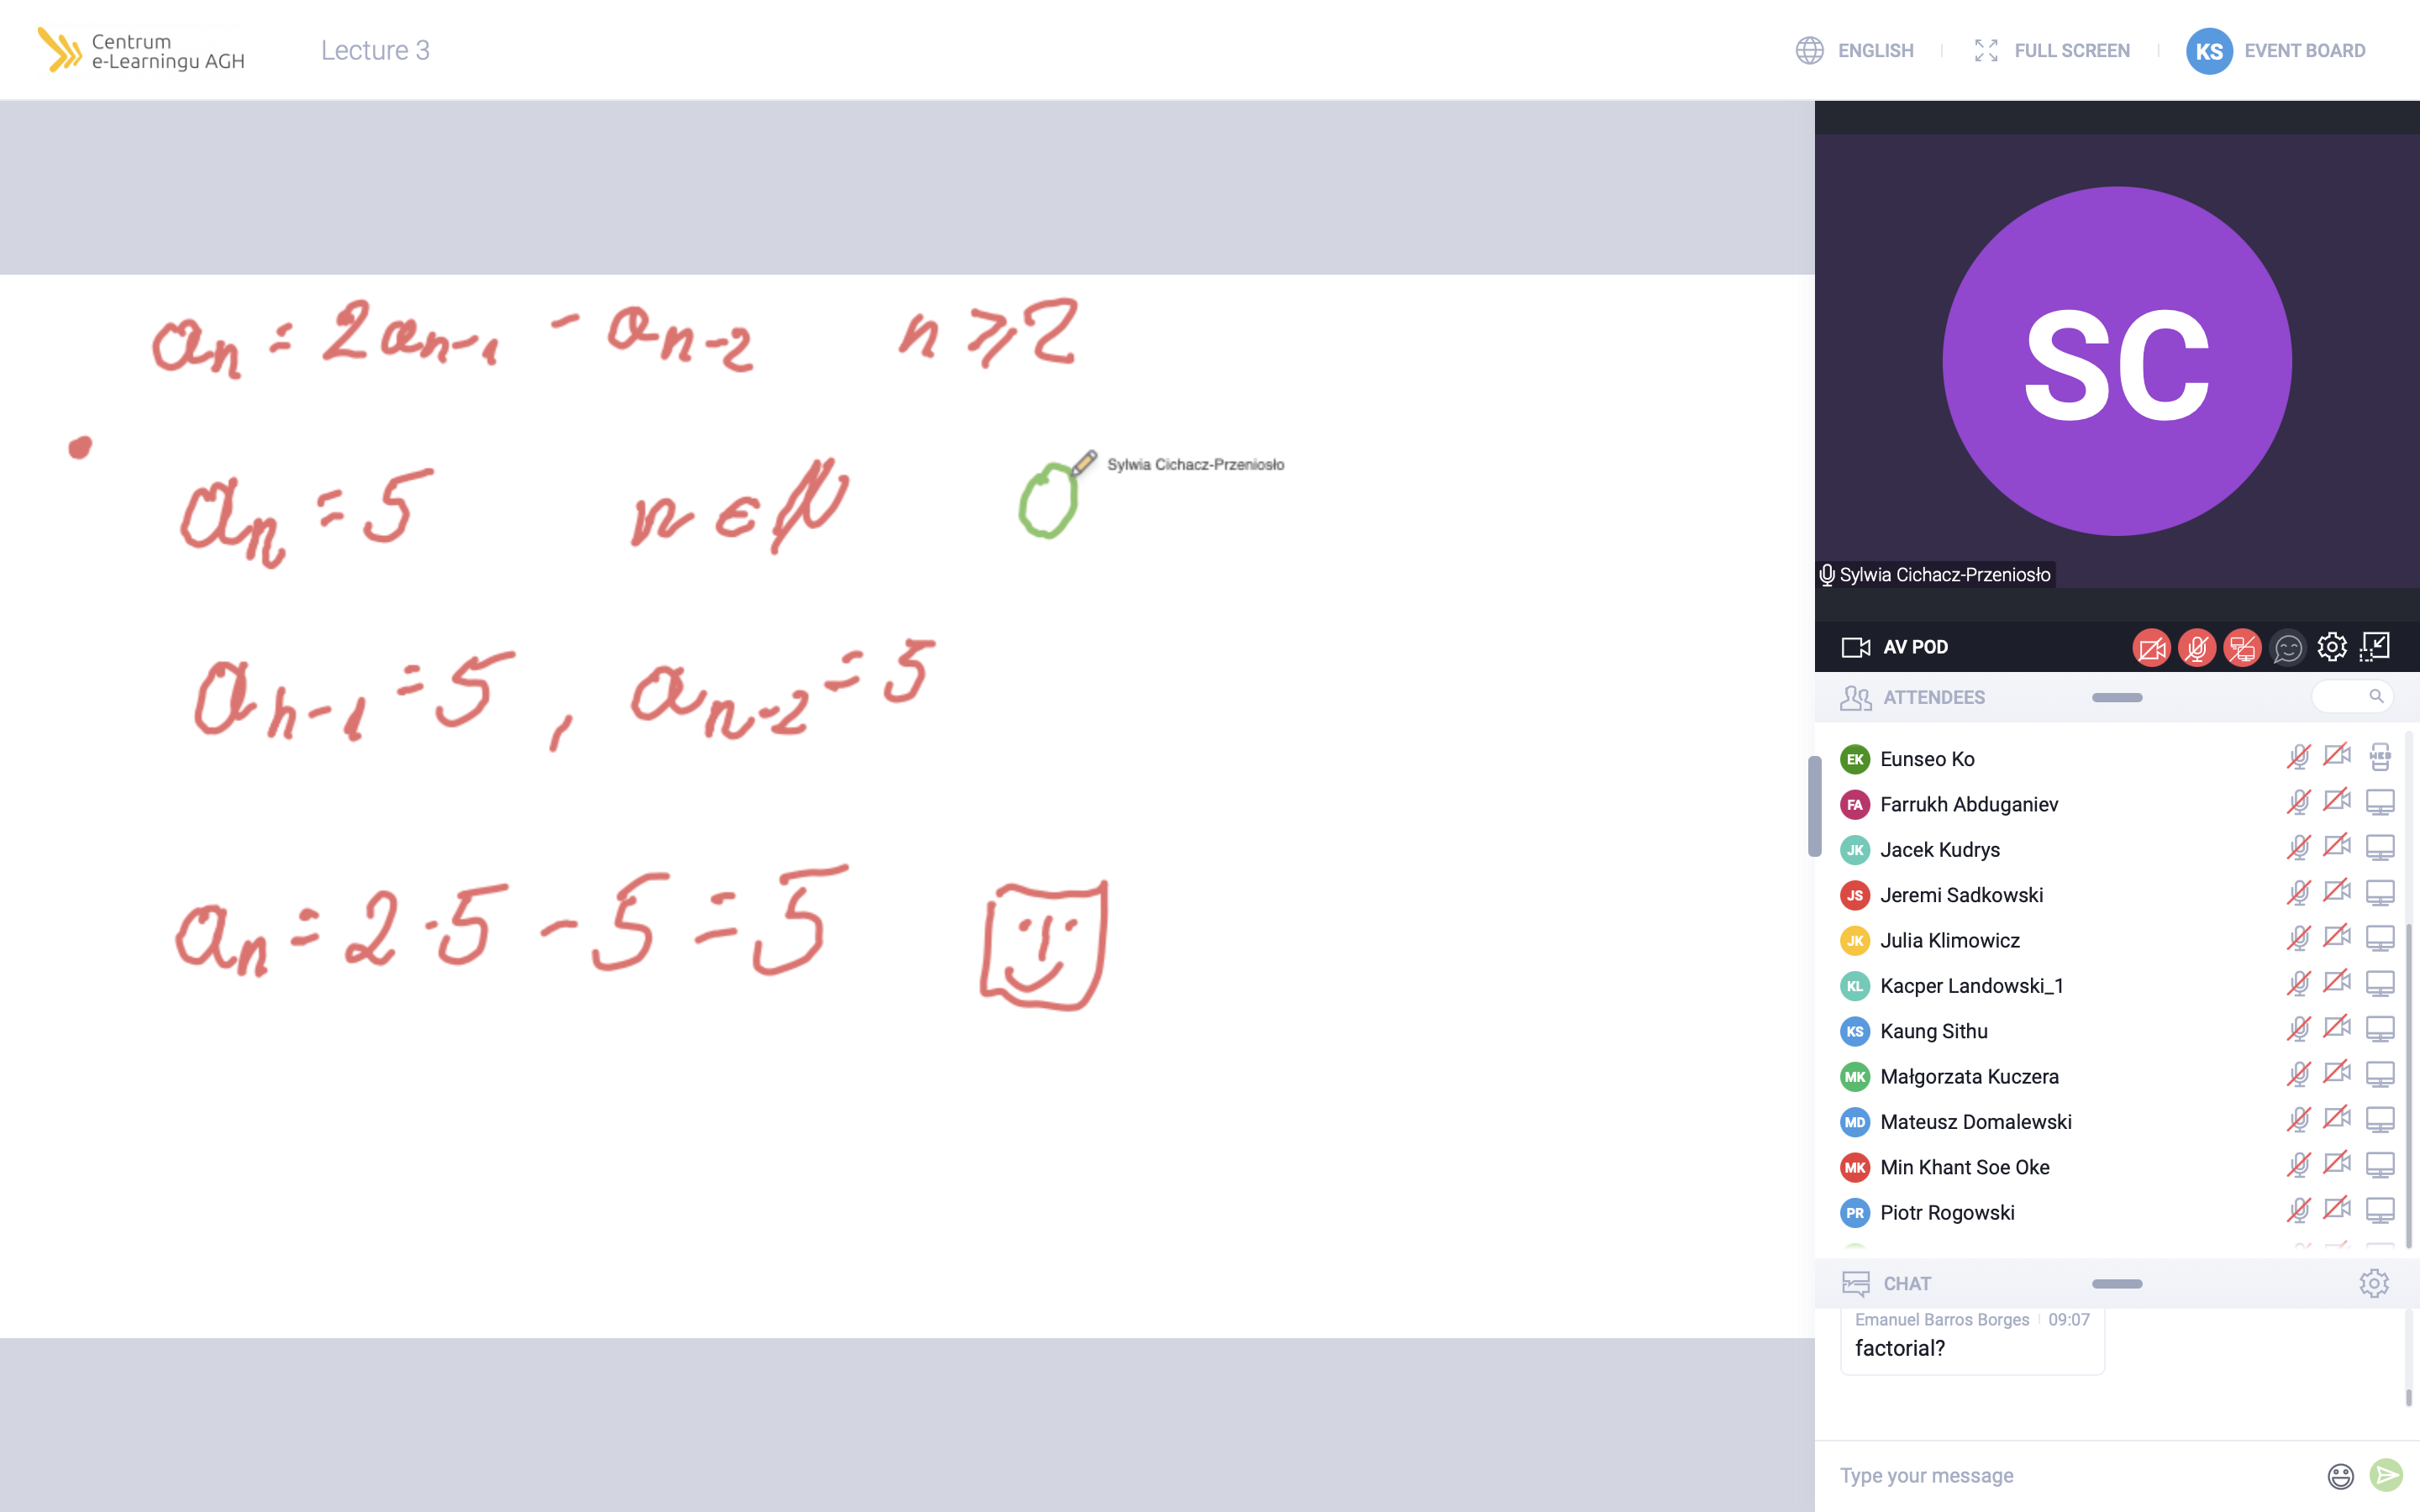 Centrum
e-Learningu AGH
Lecture 3
ENGLISH
FULL SCREEN
KS
EVENT BOARD
aₙ = 2aₙ₋₁ - aₙ₋₂ n ⩾ 2
aₙ = 5 n ∈ N
0
Sylwia Cichacz-Przeniosło
aₙ₋₁ = 5 , aₙ₋₂ = 5
aₙ = 2 · 5 - 5 = 5
SC
Sylwia Cichacz-Przeniosło
AV POD
ATTENDEES
EK Eunseo Ko
WEB
FA Farrukh Abduganiev
JK Jacek Kudrys
JS Jeremi Sadkowski
JK Julia Klimowicz
KL Kacper Landowski_1
KS Kaung Sithu
MK Małgorzata Kuczera
MD Mateusz Domalewski
MK Min Khant Soe Oke
PR Piotr Rogowski
CHAT
Emanuel Barros Borges 09:07
factorial?
Type your message